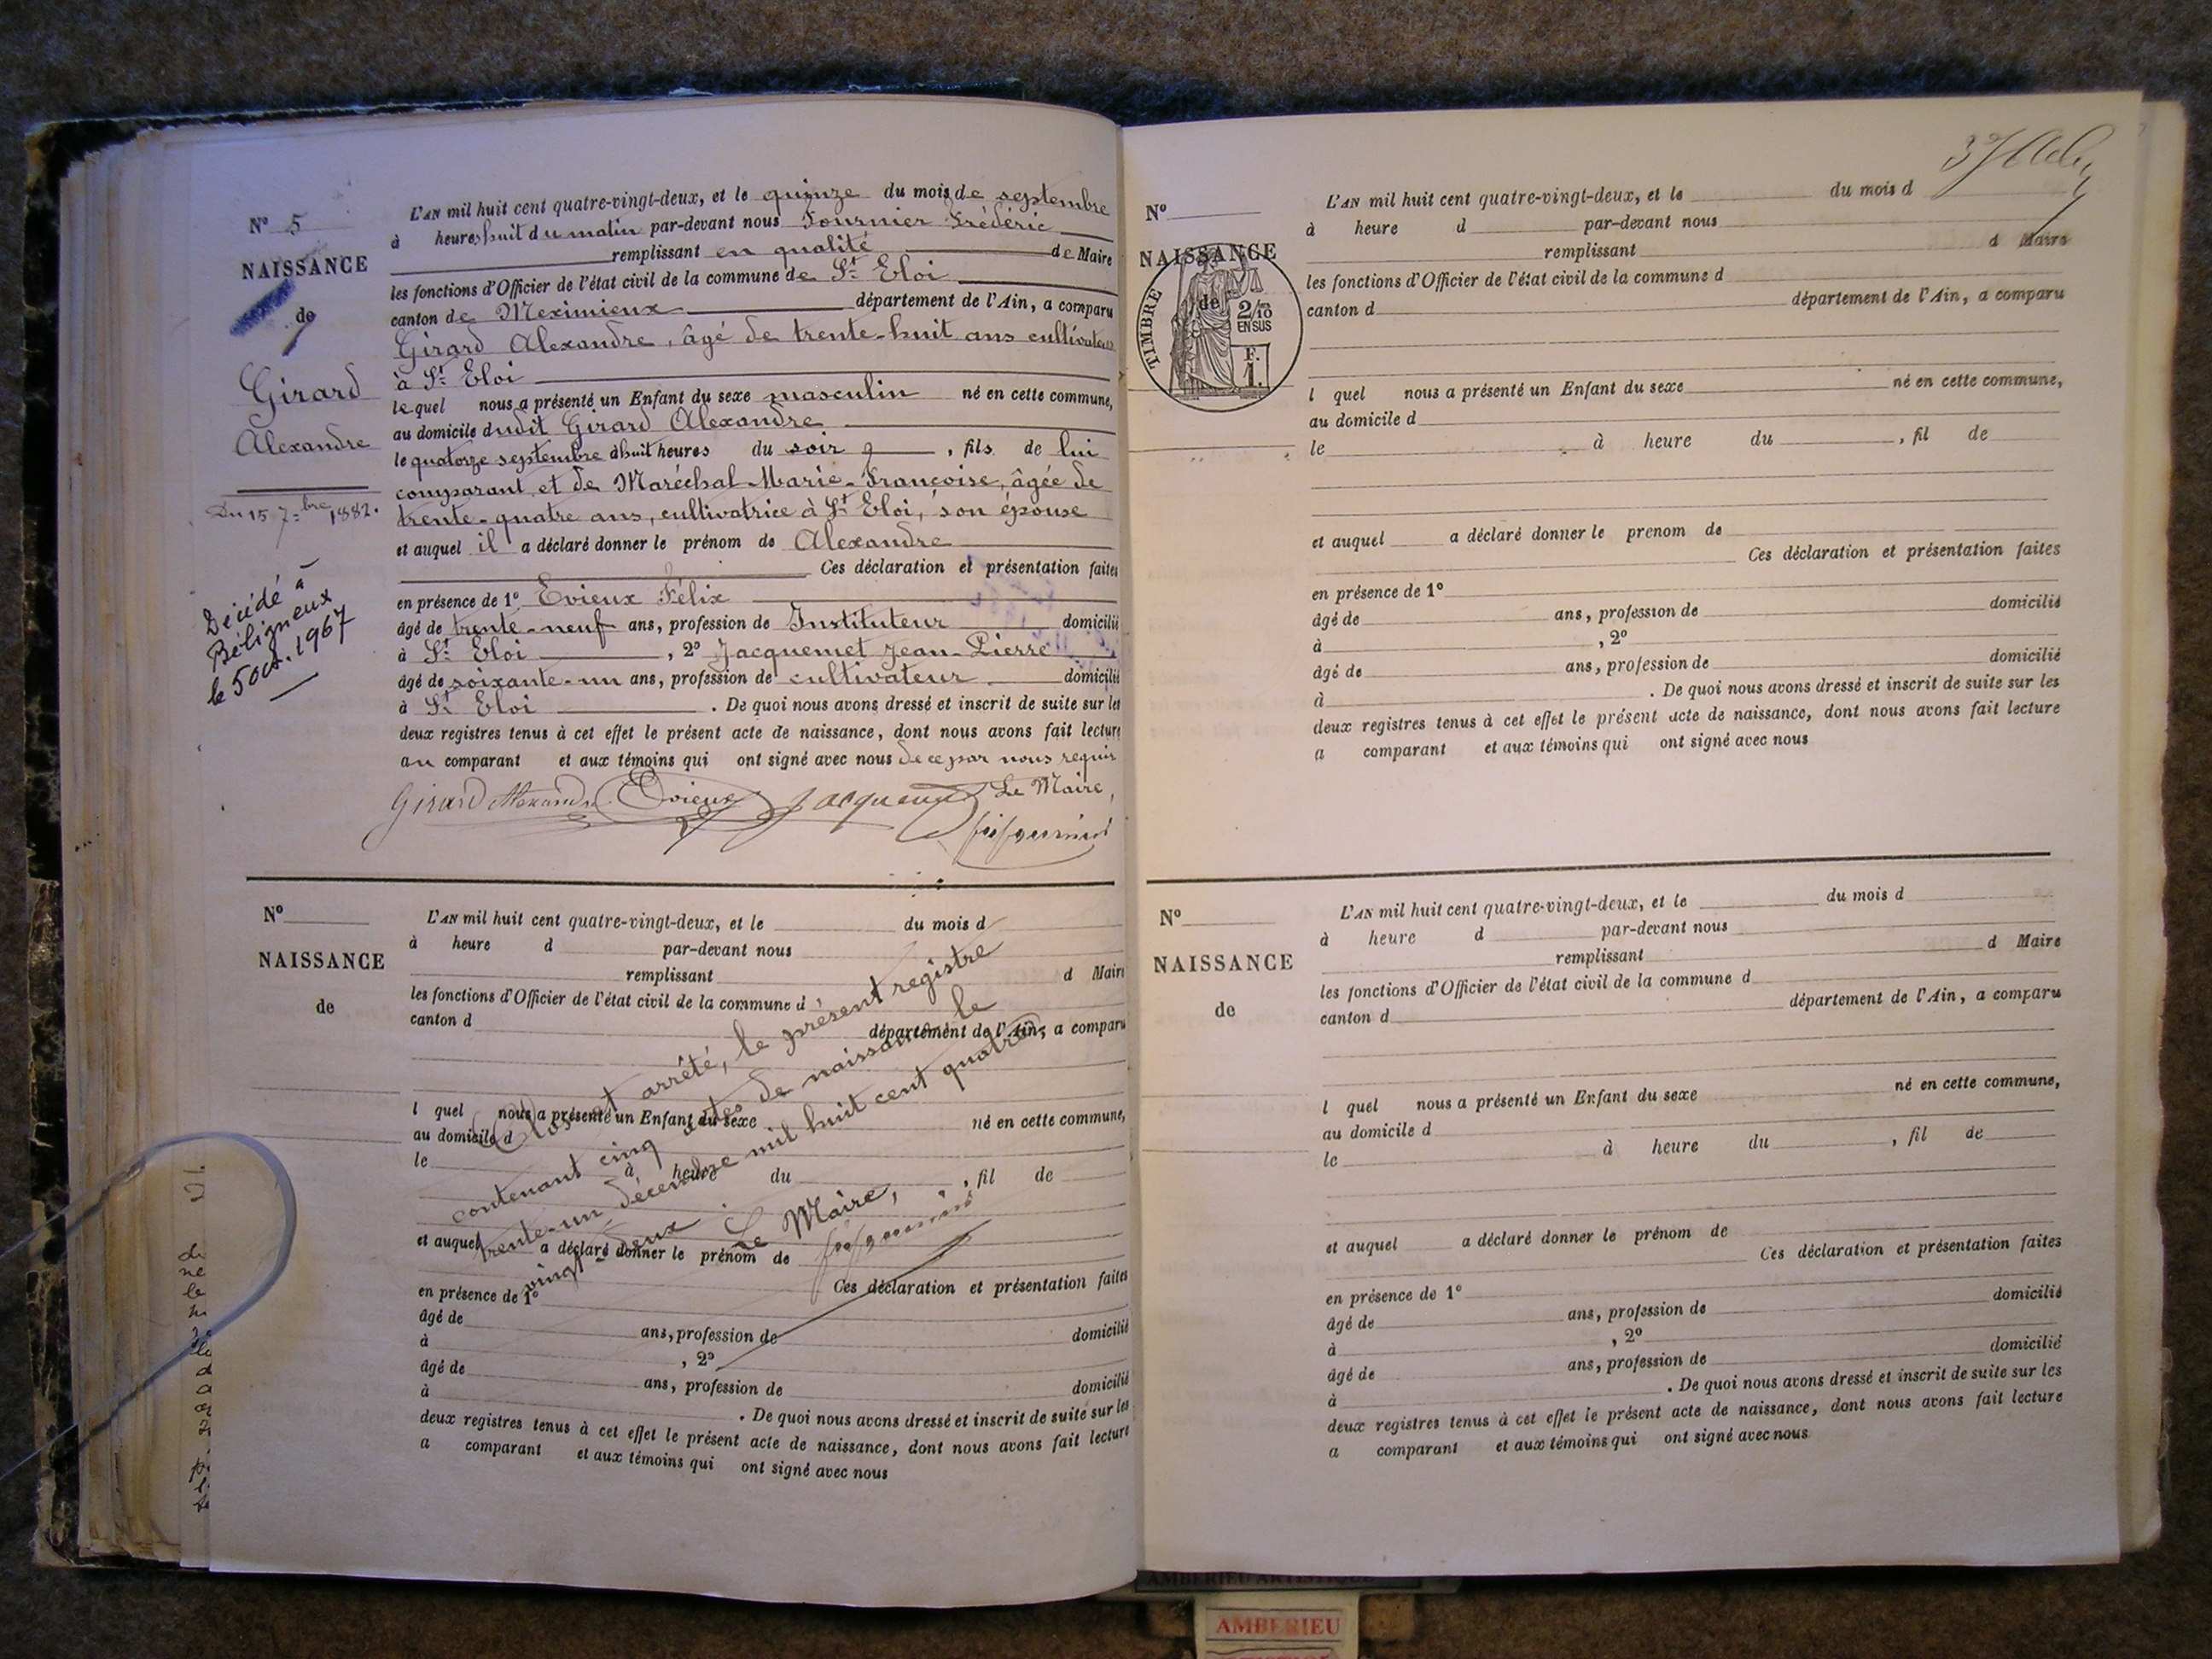 N° 5
NAISSANCE
de
Girard
Alexandre
Du 15 7bre 1882.
Décédé à
Béligneux
le 5 oct. 1967
L'AN mil huit cent quatre-vingt-deux, et le quinze du mois de septembre
à heures huit du matin par-devant nous Fournier Frédéric
remplissant en qualité de Maire
les fonctions d'Officier de l'état civil de la commune de St. Eloi
canton de Meximieux département de l'Ain, a comparu
Girard Alexandre, âgé de trente-huit ans cultivateur
à St. Eloi
lequel nous a présenté un Enfant du sexe masculin né en cette commune,
au domicile dudit Girard Alexandre
le quatorze septembre à huit heures du soir, fils de lui
comparant et de Maréchal Marie-Françoise, âgée de
trente-quatre ans, cultivatrice à St. Eloi, son épouse
et auquel il a déclaré donner le prénom de Alexandre
Ces déclaration et présentation faites
en présence de 1° Evieux Félix
âgé de trente-neuf ans, profession de Instituteur domicilié
à St. Eloi, 2° Jacquemet Jean-Pierre
âgé de soixante-un ans, profession de cultivateur domicilié
à St. Eloi. De quoi nous avons dressé et inscrit de suite sur les
deux registres tenus à cet effet le présent acte de naissance, dont nous avons fait lecture
au comparant et aux témoins qui ont signé avec nous de ce par nous requis
Girard Alexandre Evieux Jacquemet Le Maire,
N°
NAISSANCE
de
L'AN mil huit cent quatre-vingt-deux, et le du mois d
à heure d par-devant nous
remplissant d Maire
les fonctions d'Officier de l'état civil de la commune d
canton d département de l'Ain, a comparu
l quel nous a présenté un Enfant du sexe né en cette commune,
au domicile d
le à heure du , fil de
et auquel a déclaré donner le prénom de
Ces déclaration et présentation faites
en présence de 1°
âgé de ans, profession de domicilié
à , 2°
âgé de ans, profession de domicilié
à . De quoi nous avons dressé et inscrit de suite sur les
deux registres tenus à cet effet le présent acte de naissance, dont nous avons fait lecture
a comparant et aux témoins qui ont signé avec nous
Clos et arrêté, le présent registre
contenant cinq actes de naissance le
trente-un décembre mil huit cent quatre-
vingt-deux.
Le Maire,
N°
NAISSANCE
de
TIMBRE
2/10
EN SUS
F.
1.
L'AN mil huit cent quatre-vingt-deux, et le du mois d
à heure d par-devant nous
remplissant d Maire
les fonctions d'Officier de l'état civil de la commune d
canton d département de l'Ain, a comparu
l quel nous a présenté un Enfant du sexe né en cette commune,
au domicile d
le à heure du , fil de
et auquel a déclaré donner le prenom de
Ces déclaration et présentation faites
en présence de 1°
âgé de ans, profession de domicilié
à , 2°
âgé de ans, profession de domicilié
à . De quoi nous avons dressé et inscrit de suite sur les
deux registres tenus à cet effet le présent acte de naissance, dont nous avons fait lecture
a comparant et aux témoins qui ont signé avec nous
N°
NAISSANCE
de
L'AN mil huit cent quatre-vingt-deux, et le du mois d
à heure d par-devant nous
remplissant d Maire
les fonctions d'Officier de l'état civil de la commune d
canton d département de l'Ain, a comparu
l quel nous a présenté un Enfant du sexe né en cette commune,
au domicile d
le à heure du , fil de
et auquel a déclaré donner le prénom de
Ces déclaration et présentation faites
en présence de 1°
âgé de ans, profession de domicilié
à , 2°
âgé de ans, profession de domicilié
à . De quoi nous avons dressé et inscrit de suite sur les
deux registres tenus à cet effet le présent acte de naissance, dont nous avons fait lecture
a comparant et aux témoins qui ont signé avec nous
AMBERIEU ARTISTIQUE
AMBERIEU